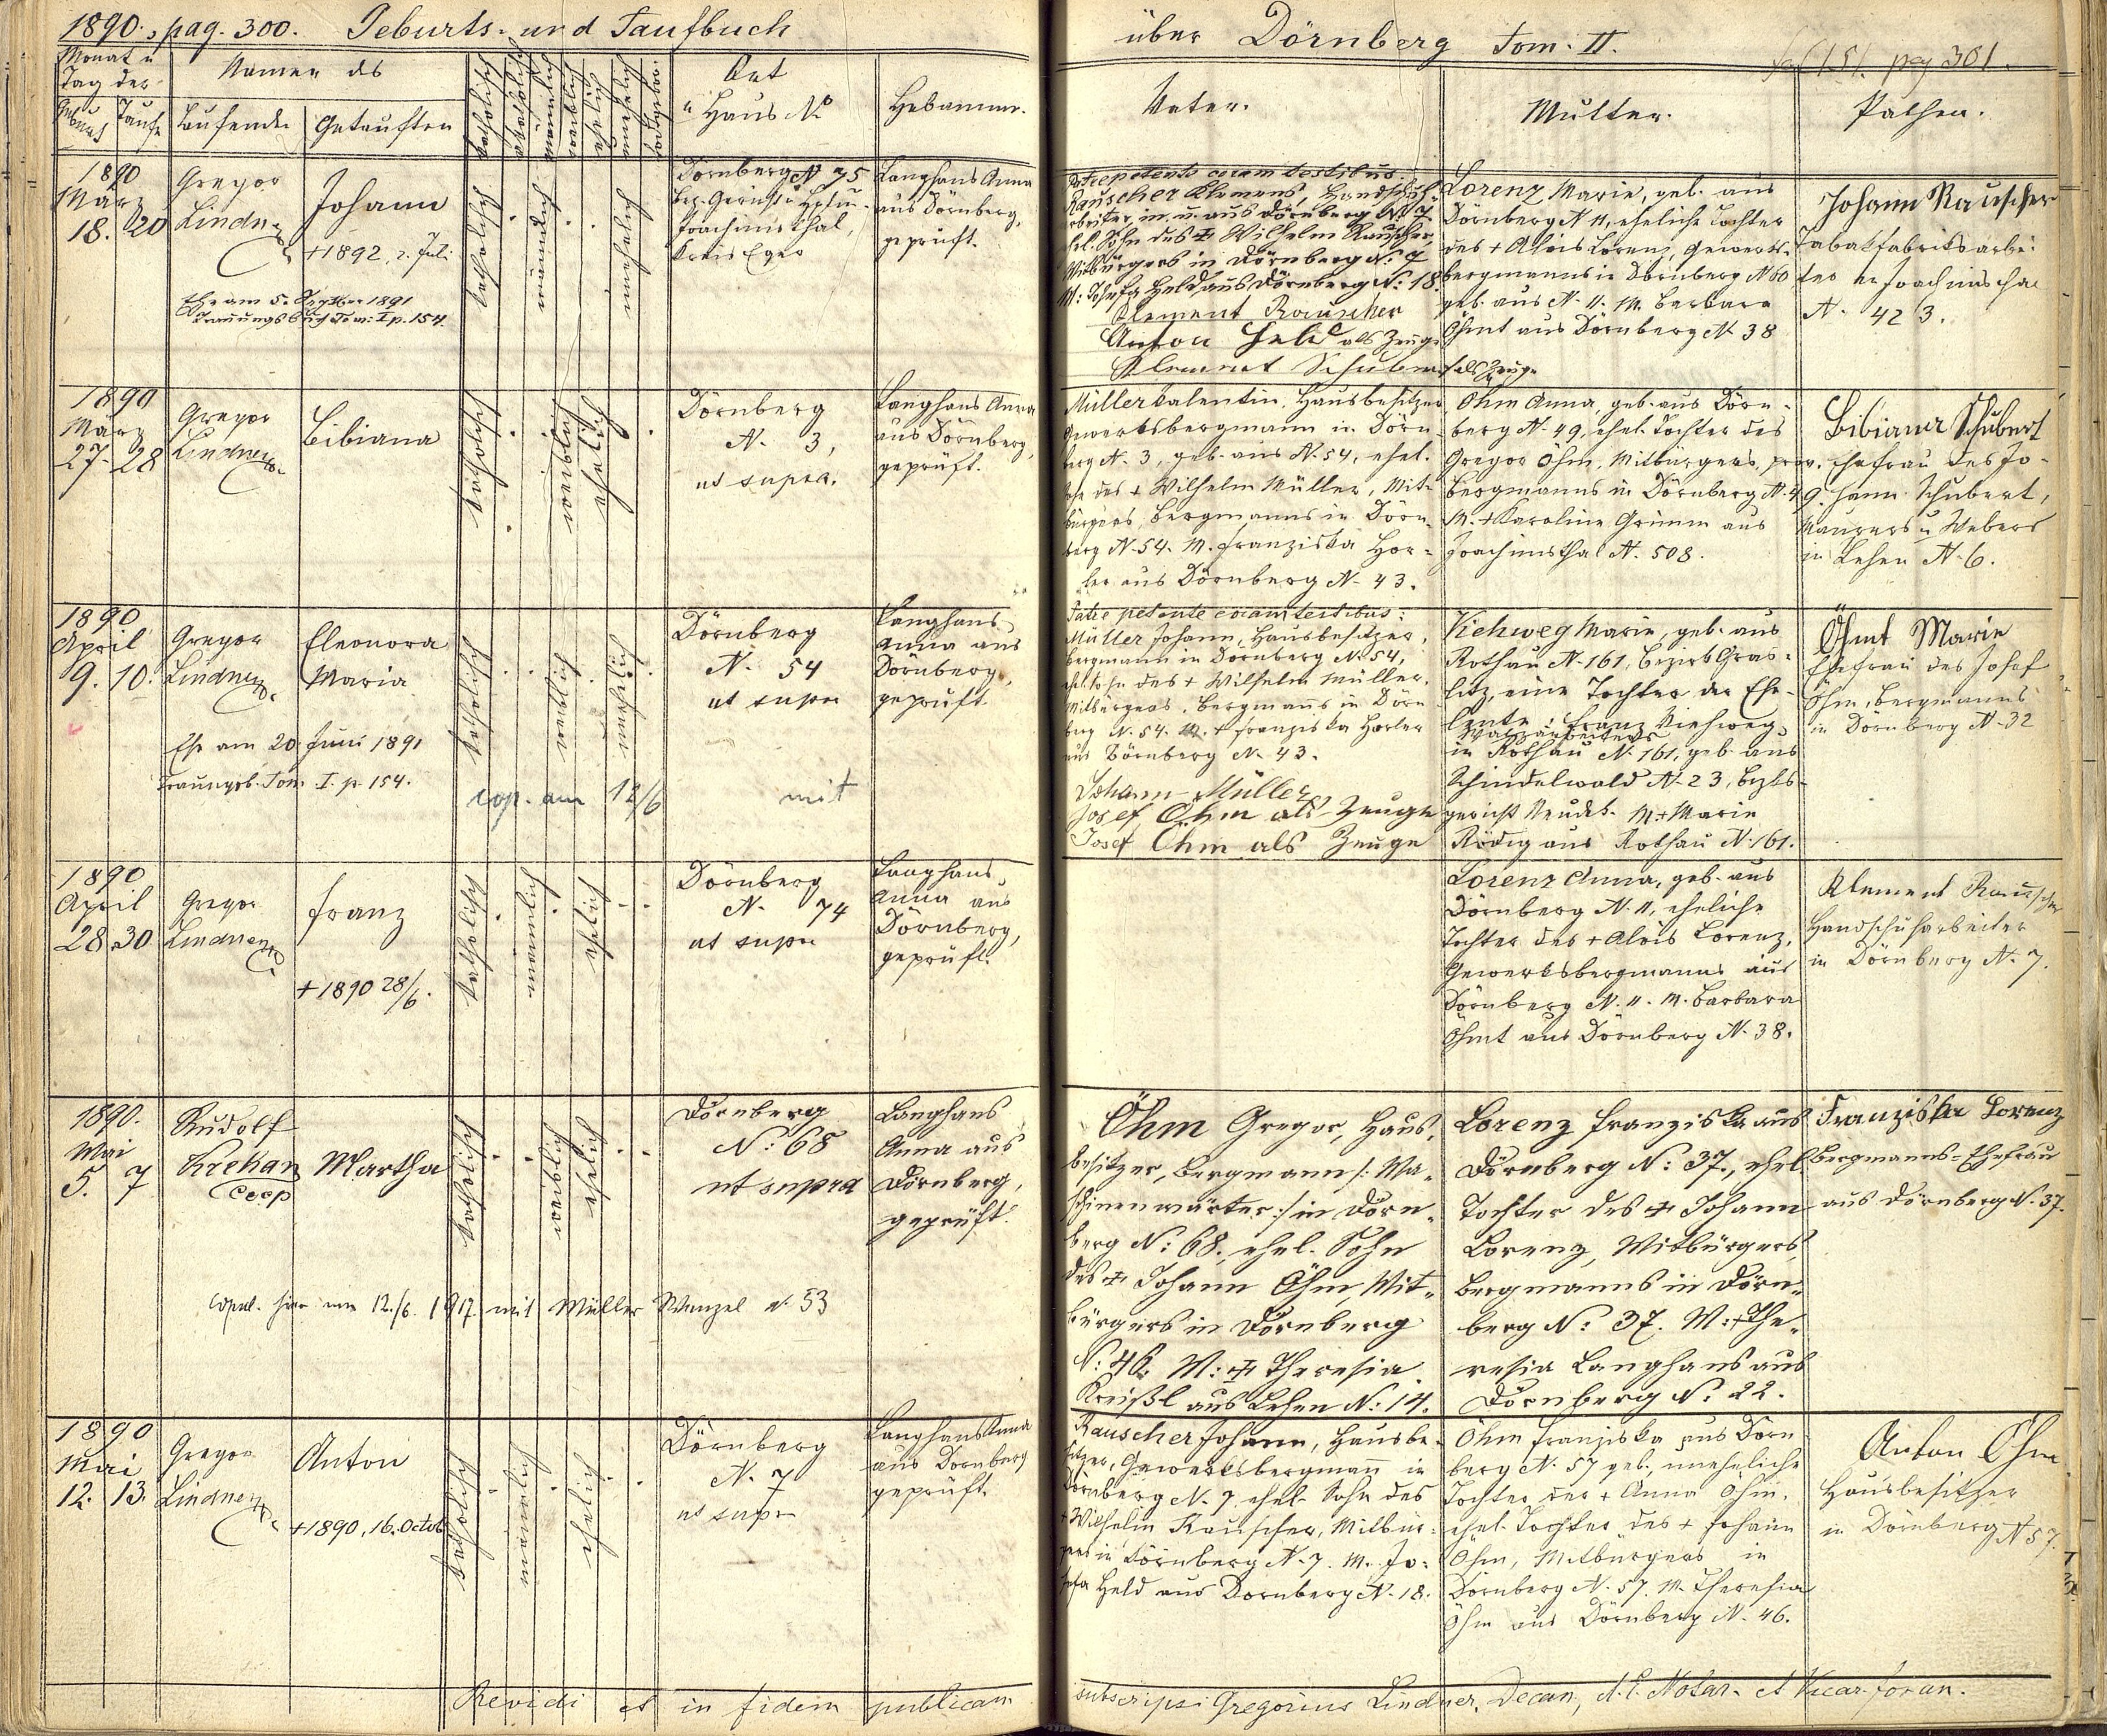 1890., pag. 300. Geburts- und Taufbuch
über Dörnberg Tom. II.
pag 301.
Monat u
Tag der
Geburt
Taufe
Namen des
Taufenden
Getauften
katholisch
männlich
weiblich
ehelich
unehelich
Ort
u Haus No
Hebamme.
Vater.
Mutter.
Pathen.
1890
März
18. 20
Gregor
Lindner
Johann
+1892, 2. Juli
Ehe am 5. September 1891
Trauungsbuch Tom: I p. 154.
katholisch
männlich
unehelich
Dörnberg N 75
Joachimsthal,
Kreis Eger
Langhans Anna
aus Dörnberg,
geprüft.
Patre petente coram testibus:
Rauscher Klemens, Handschuh-
arbeiter, aus Dörnberg N. 7
ehel. Sohn des + Wilhelm Rauscher,
Mitbürgers in Dörnberg N: 7
M: Josefa Held aus Dörnberg N: 18.
Klement Rauscher
Anton Held als Zeuge
Klement Schubert als Zeuge
Lorenz Marie, geb. aus
Dörnberg N 11, eheliche Tochter
des + Alois Lorenz, Gewerks-
bergmanns in Dörnberg N
geb. aus N. 11. M. Barbara
Öhmt aus Dörnberg N 38
Johann Rauscher
Tabakfabriksarbei-
ter in Joachimsthal
N. 423.
1890
März
27. 28
Gregor
Lindner
Bibiana
katholisch
weiblich
ehelich
Dörnberg
N. 3,
ut supra.
Langhans Anna
aus Dörnberg,
geprüft.
Müller Valentin, Hausbesitzer
Gewerksbergmann in Dörn-
berg N. 3, geb. aus N. 54, ehel.
Sohn des + Wilhelm Müller, Mit-
bürgers, Bergmanns in Dörn-
berg N. 54. M. Franziska Hor-
ler aus Dörnberg N. 43.
Öhm Anna, geb. aus Dörn-
berg N. 49, ehel. Tochter des
Gregor Öhm, Mitbürgers, prov.
Bergmanns in Dörnberg N. 49.
M. + Karoline Grimm aus
Joachimsthal N. 508.
Bibiana Schubert
Ehefrau des Jo-
hann Schubert,
Maurers u Webers
in Lehen N. 6.
1890
April
9. 10.
Gregor
Lindner
Eleonora
Maria
Ehe am 20. Juni 1891
Trauungsb. Tom. I. p. 154.
cop. am 12/6 mit
katholisch
weiblich
unehelich
Dörnberg
N. 54
ut supra
Langhans
Anna aus
Dörnberg,
geprüft.
Patre petente coram testibus:
Müller Johann, Hausbesitzer,
Bergmann in Dörnberg N. 54,
ehel. Sohn des + Wilhelm Müller,
Mitbürgers, Bergmanns in Dörn-
berg N. 54. M. + Franziska Horler
aus Dörnberg N. 43.
Johann Müller
Josef Öhm als Zeuge
Josef Öhm als Zeuge
Viehweg Marie, geb. aus
Rothau N. 161, Bezirk Gras-
litz, eine Tochter der Ehe-
leute: Franz Viehweg,
Walzarbeiters
in Rothau N. 161, geb. aus
Schindelwald N. 23, Bezks-
gericht Neudek. M. + Marie
Rödig aus Rothau N. 161.
Öhmt Marie
Ehefrau des Josef
Öhm, Bergmanns
in Dörnberg N. 32
1890
April
28. 30.
Gregor
Lindner
Franz
+ 1890 28/6.
katholisch
männlich
ehelich
Dörnberg
N. 74
ut supra
Langhans
Anna aus
Dörnberg,
geprüft.
Lorenz Anna, geb. aus
Dörnberg N. 11, eheliche
Tochter des + Alois Lorenz,
Gewerksbergmanns aus
Dörnberg N. 11. M. Barbara
Öhmt aus Dörnberg N. 38.
Klement Rauscher
Handschuharbeiter
in Dörnberg N. 7.
1890.
Mai
5. 7
Rudolf
Krehan
Coop
Martha
katholisch
weiblich
ehelich
Dörnberg
N: 68
ut supra
Langhans
Anna aus
Dörnberg,
geprüft.
copul. hier am 12./6. 1917 mit Müller Wenzel N. 53
Öhm Gregor, Haus-
besitzer, Bergmann /: Ma-
schinenwärter :/ in Dörn-
berg N: 68, ehel. Sohn
des + Johann Öhm, Mit-
bürgers in Dörnberg
N: 46. M: + Theresia
Kreißl aus Lehen N: 14.
Lorenz Franziska aus
Dörnberg N: 37., ehel.
Tochter des + Johann
Lorenz, Mitbürgers,
Bergmanns in Dörn-
berg N: 37. M: + The-
resia Langhans aus
Dörnberg N: 22.
Franziska Lorenz
Bergmanns-Ehefrau
aus Dörnberg N. 37.
1890
Mai
12. 13.
Gregor
Lindner
Anton
+1890, 16. Octob
katholisch
männlich
ehelich
Dörnberg
N. 7
ut supr
Langhans Anna
aus Dörnberg
geprüft.
Rauscher Johann, Hausbe-
sitzer, Gewerksbergmann in
Dörnberg N. 7, ehel. Sohn des
+ Wilhelm Rauscher, Mitbür-
gers in Dörnberg N. 7. M. Jo-
sefa Held aus Dörnberg N. 18.
Öhm Franziska aus Dörn-
berg N. 57 geb., uneheliche
Tochter der + Anna Öhm,
ehel. Tochter des + Johann
Öhm, Mitbürgers in
Dörnberg N. 57. M. Theresia
Öhm aus Dörnberg N. 46.
Anton Öhm
Hausbesitzer
in Dörnberg N 57.
Revidi et in fidem publicam
subscripsi Gregorius Lindner, Decan, A. E. Notar. et Vicar. foran.